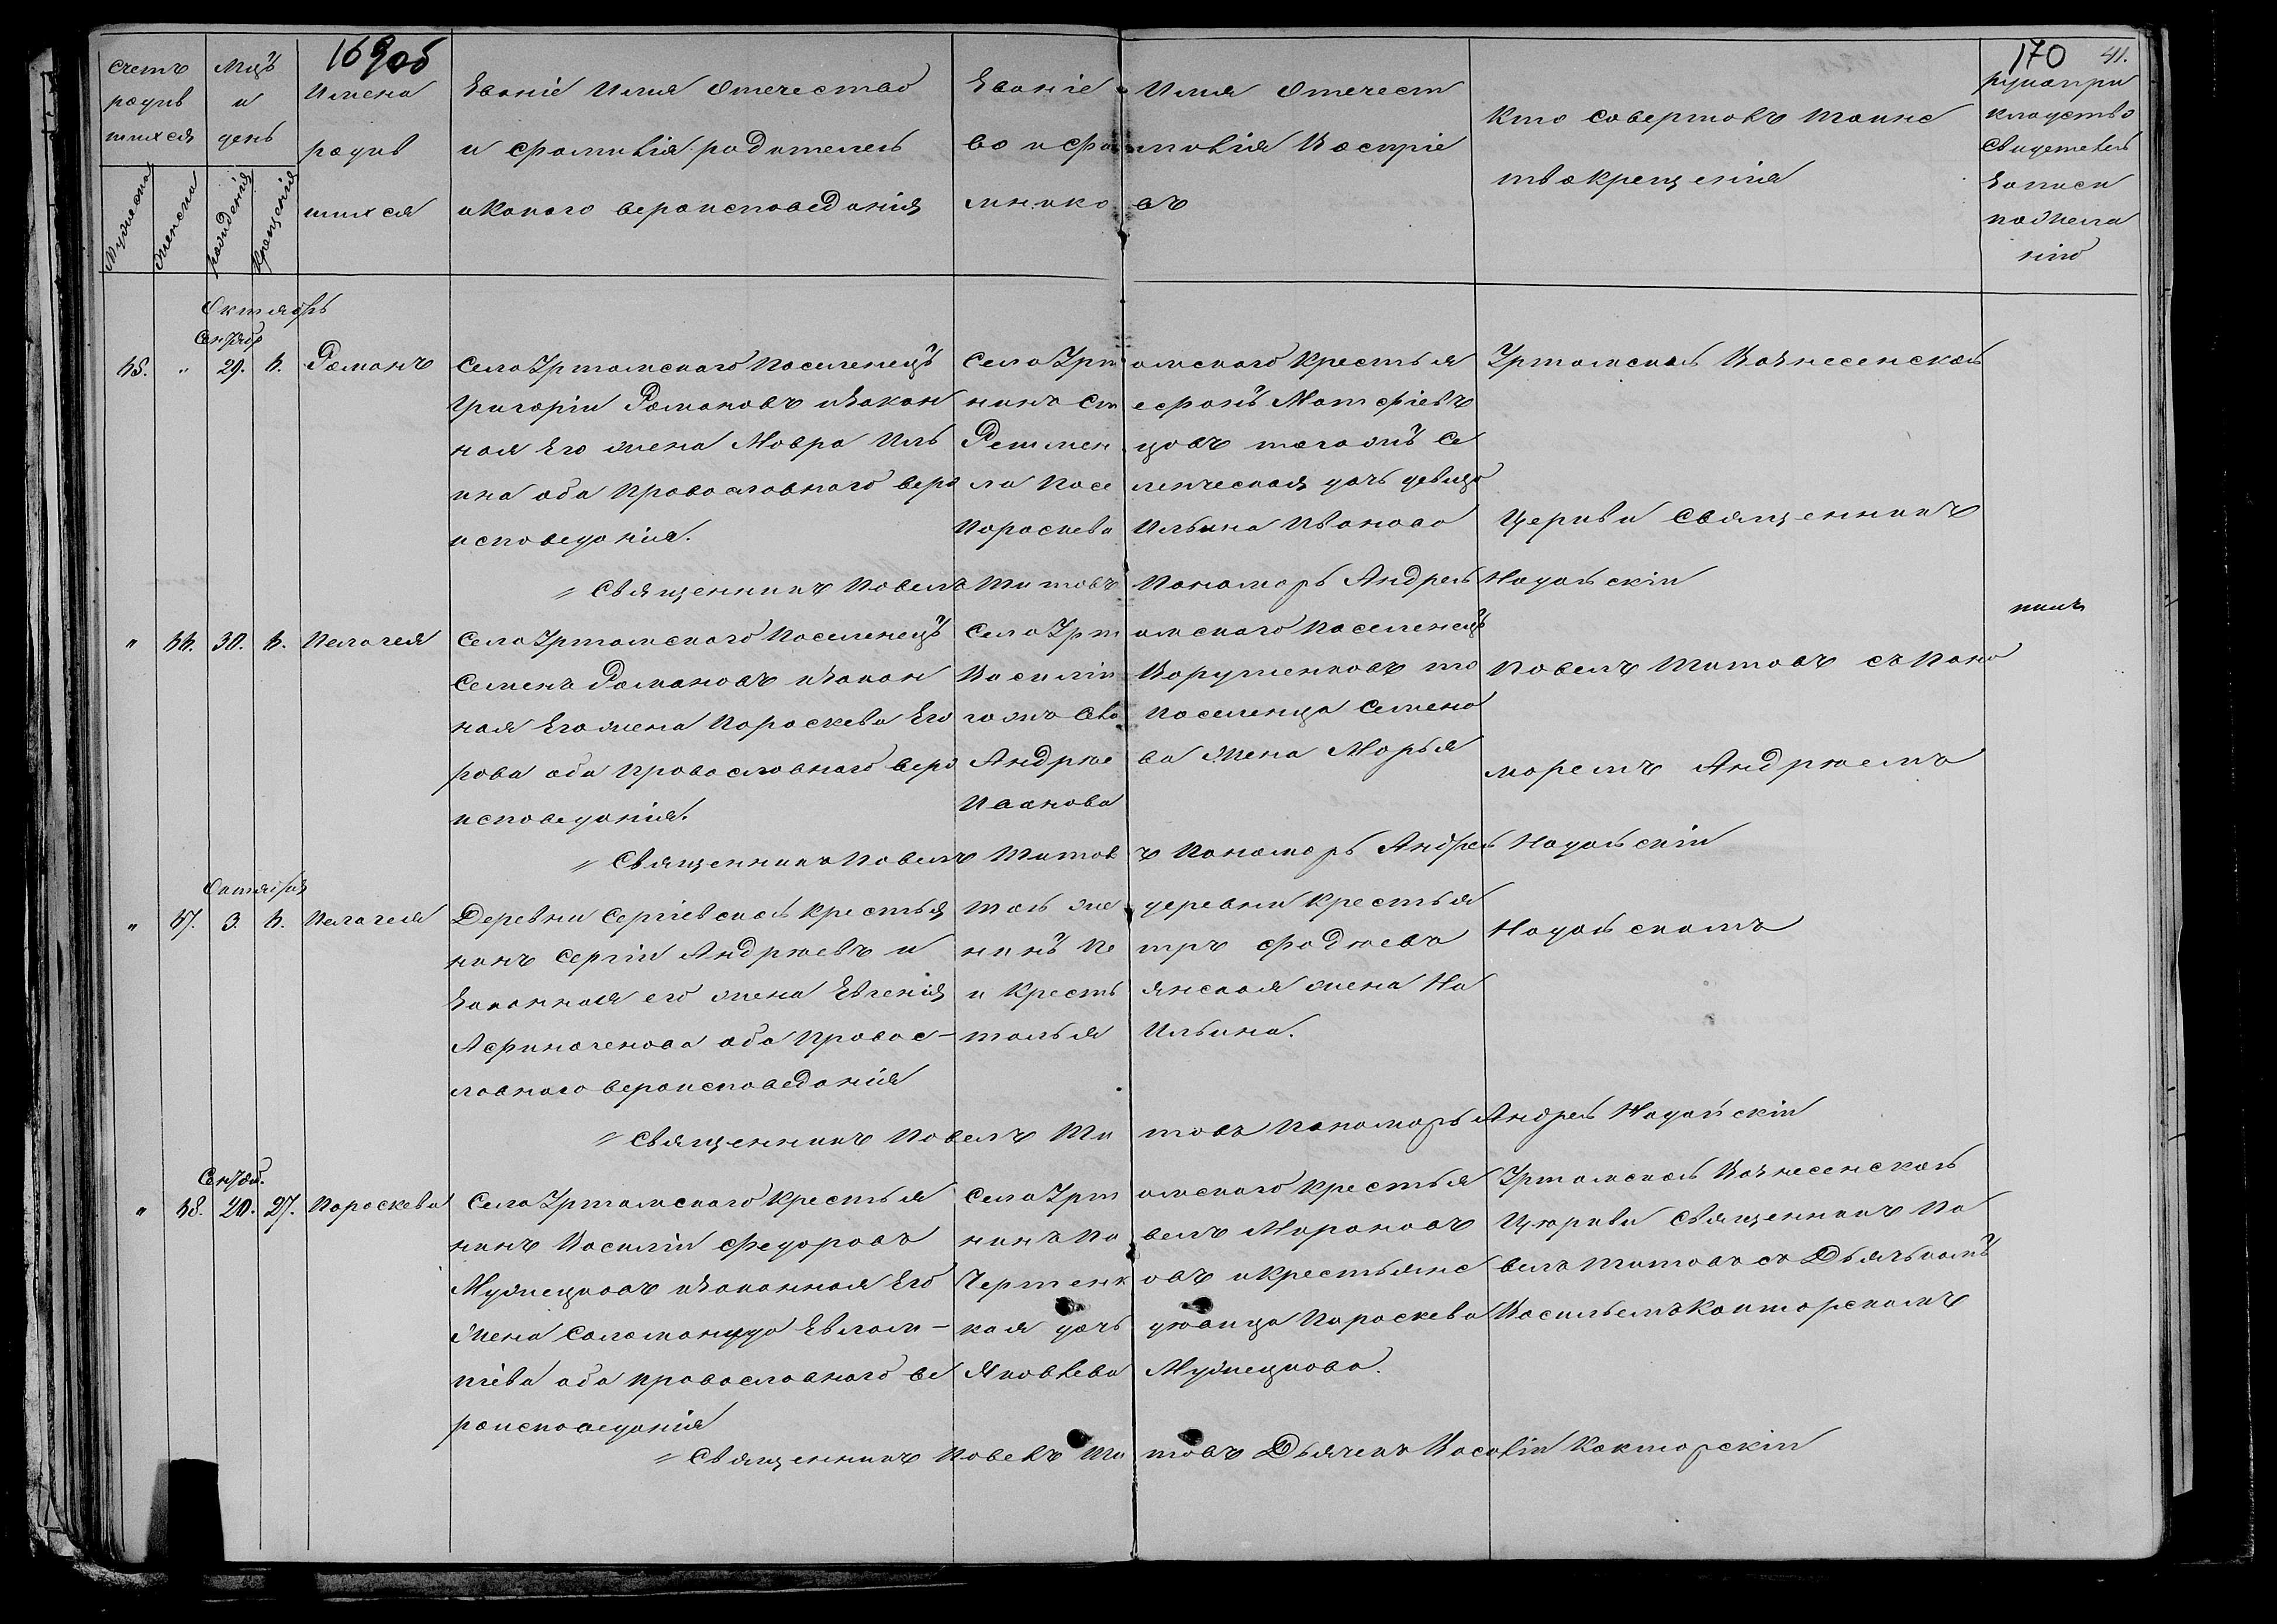 170 41.
Счетъ родив шихся
Мужеска
Женска
Мцъ и день
рожденія
крещенія
Имена родив шихся
Званіе Имя Отечество
и фамилія родителей
и какого вероисповеданія
Званіе Имя Отечест
во и фамилія Воспріе
мниковъ
Кто совершалъ таинс
тво крещенія
рукопри
кладство
свидетелей
записи
по жела
нію
Октябрь
Сентябр
29. Романъ
Села Уртамского Поселенецъ
Григорій Романовъ и Закон
ная Его жена Мавра Иль
ина оба Православнаго веро
исповеданія.
Села Уртамского Крестья
нинъ Стефанъ Матфіевъ
Решменцовъ тогожъ Се
ла Поселенческая дочь девица
Пораскева Ивановa
Уртамской Вознесенской
Церкви Священникъ
Священникъ Павелъ Титовъ Пономарь Андрей Надольскій
" 30. Пелагея
Села Уртамского Поселенецъ
Семенъ Романовъ и Закон
ная Его жена Пораскева Его
рова оба Православнаго веро
исповеданія.
Села Уртамского Поселенецъ
Василій
тогожъ Села Поселенца Семена
Андрее ва жена Марья
Иванова
Павелъ Титовъ съ Поно
маремъ Андреемъ
Священникъ Павелъ Титовъ Пономарь Андрей Надольскій
Октября
" 47. 3. Пелагея
Деревни Сергіевской Крестья
нинъ Сергій Андреевъ и
Законная его жена Евгенія
Афиногенова оба Правос-
лавнаго вероисповеданія
Той же деревни Крестья
нинъ Петръ Фадеевъ
и Крестьянская жена На
талья Ильина.
Надольскимъ
Священникъ Павелъ Титовъ Пономарь Андрей Надольскій
Сентяб.
" 48. 20. 27. Пораскева
Села Уртамского Крестья
нинъ Василій Федоровъ
Мужецковъ и Законная Его
Жена Саломанида Евлам-
піева оба православнаго ве
роисповеданія
Села Уртамского Крестья
нинъ Павелъ Мироновъ
Чертенковъ и Крестьянс
кая дочь девица Пораскева
Яковлева Мужецкова.
Уртамской Вознесенской
Церкви Священникъ Па
велъ Титовъ съ Дьячькомъ
Васильемъ Канторскимъ
Священникъ Павелъ Титовъ Дьячекъ Василій Канторскій